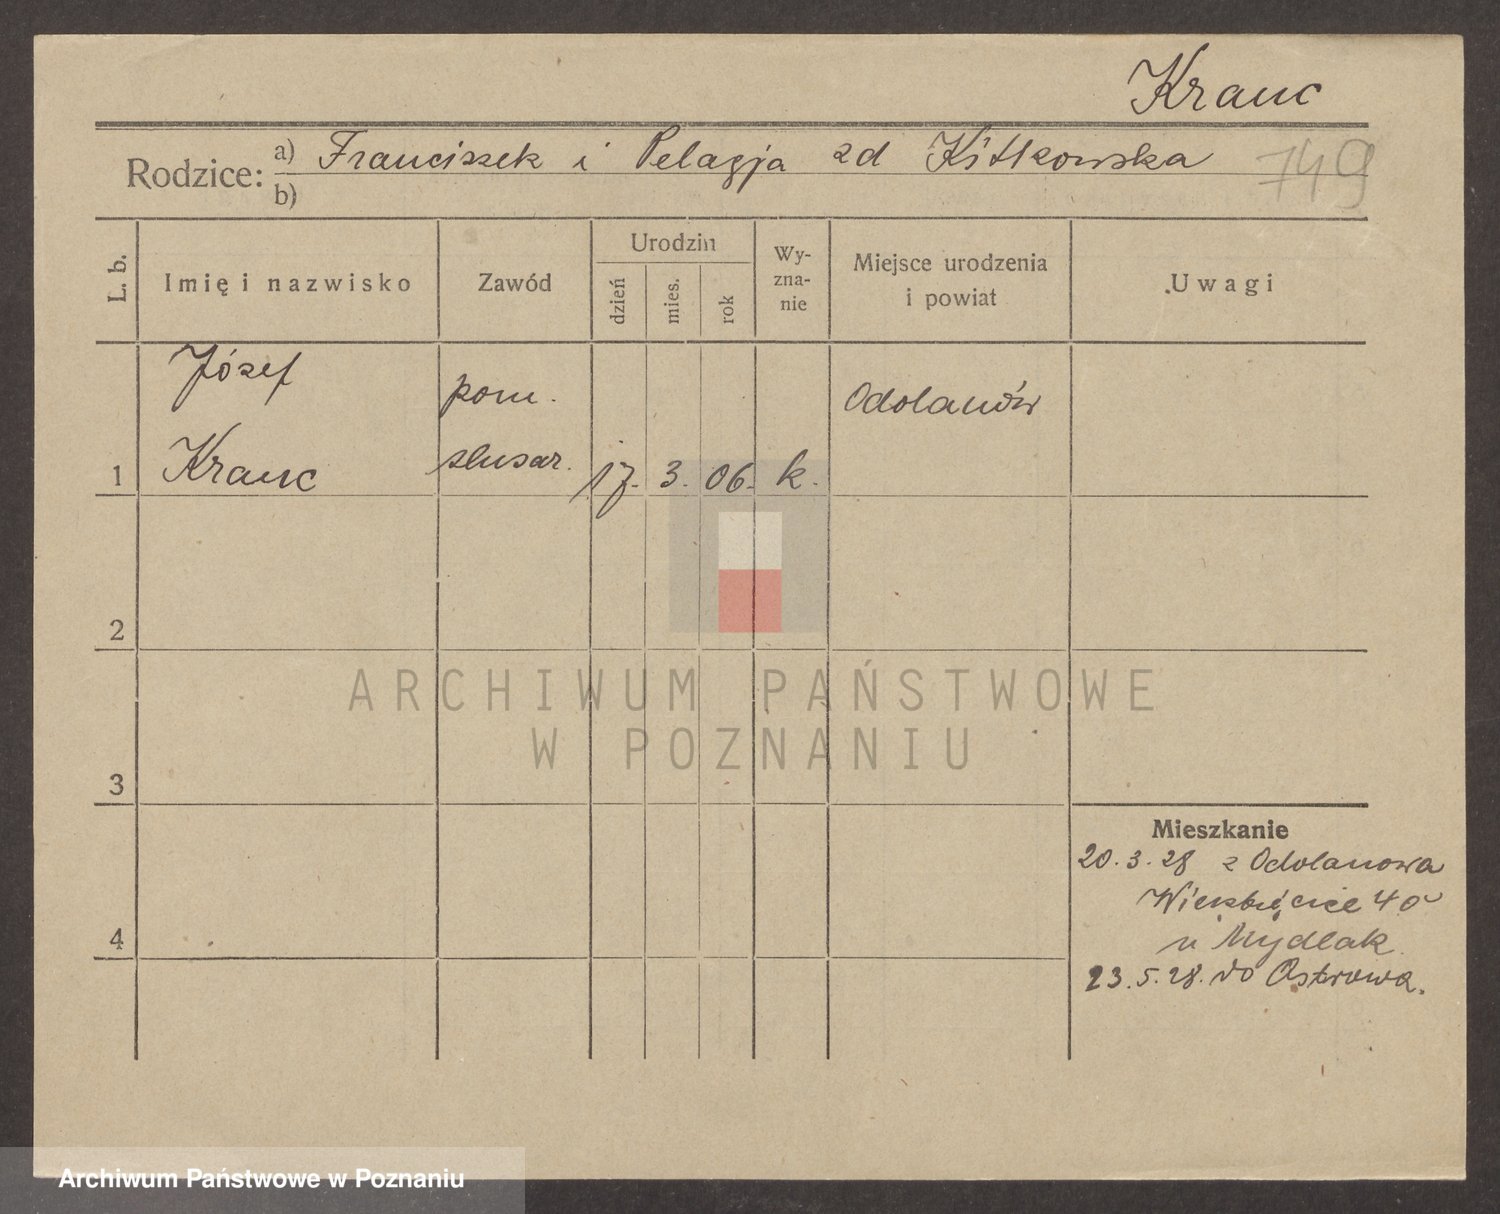 Kranc
Rodzice: a) Franciszek i Pelagja zd Kitkowska 749
b)
L. b. Imię i nazwisko Zawód Urodzin dzień mies. rok Wy-zna-nie Miejsce urodzenia i powiat Uwagi
Józef pom. Odolanów
1 Kranc slusar. 17. 3. 06. k.
2
ARCHIWUM PAŃSTWOWE
W POZNANIU
3
Mieszkanie
20.3.28 z Odolanowa
Wierzbięcice 40
4 u Mydlak
23.5.28. do Ostrowa.
Archiwum Państwowe w Poznaniu